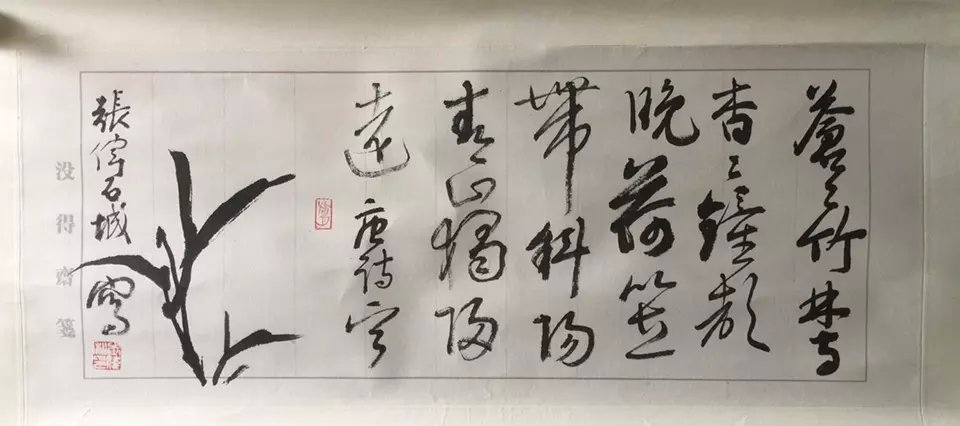 蒼〻竹林寺
杳〻鐘聲
晚荷笠
帶斜陽
青山獨歸
遠
唐詩
張石城
寫
没得齋箋